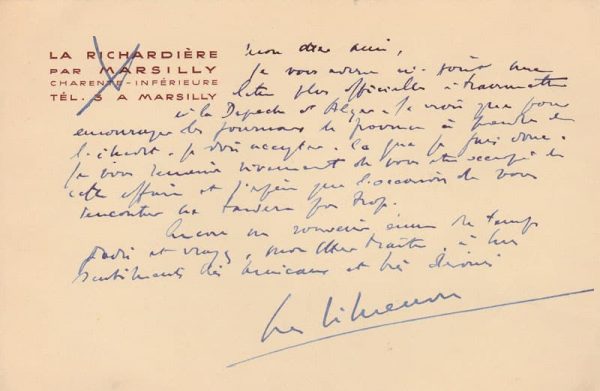 LA RICHARDIÈRE
PAR MARSILLY
CHARENTE-INFÉRIEURE
TÉL. 5 A MARSILLY
mon cher ami,
Je vous adresse ci-joint une
lettre plus officielle à transmettre
à la Dépêche d'Alger. Je crois que pour
encourager les journaux de province à prendre de
l'inédit, je dois accepter. Ce que je fais donc.
Je vous remercie vivement de vous être occupé de
cette affaire et j'espère que l'occasion de vous
rencontrer ne tardera pas trop.
Encore un souvenir du temps
jadis et croyez, mon cher, à mes
sentiments très amicaux et très dévoués
Simenon